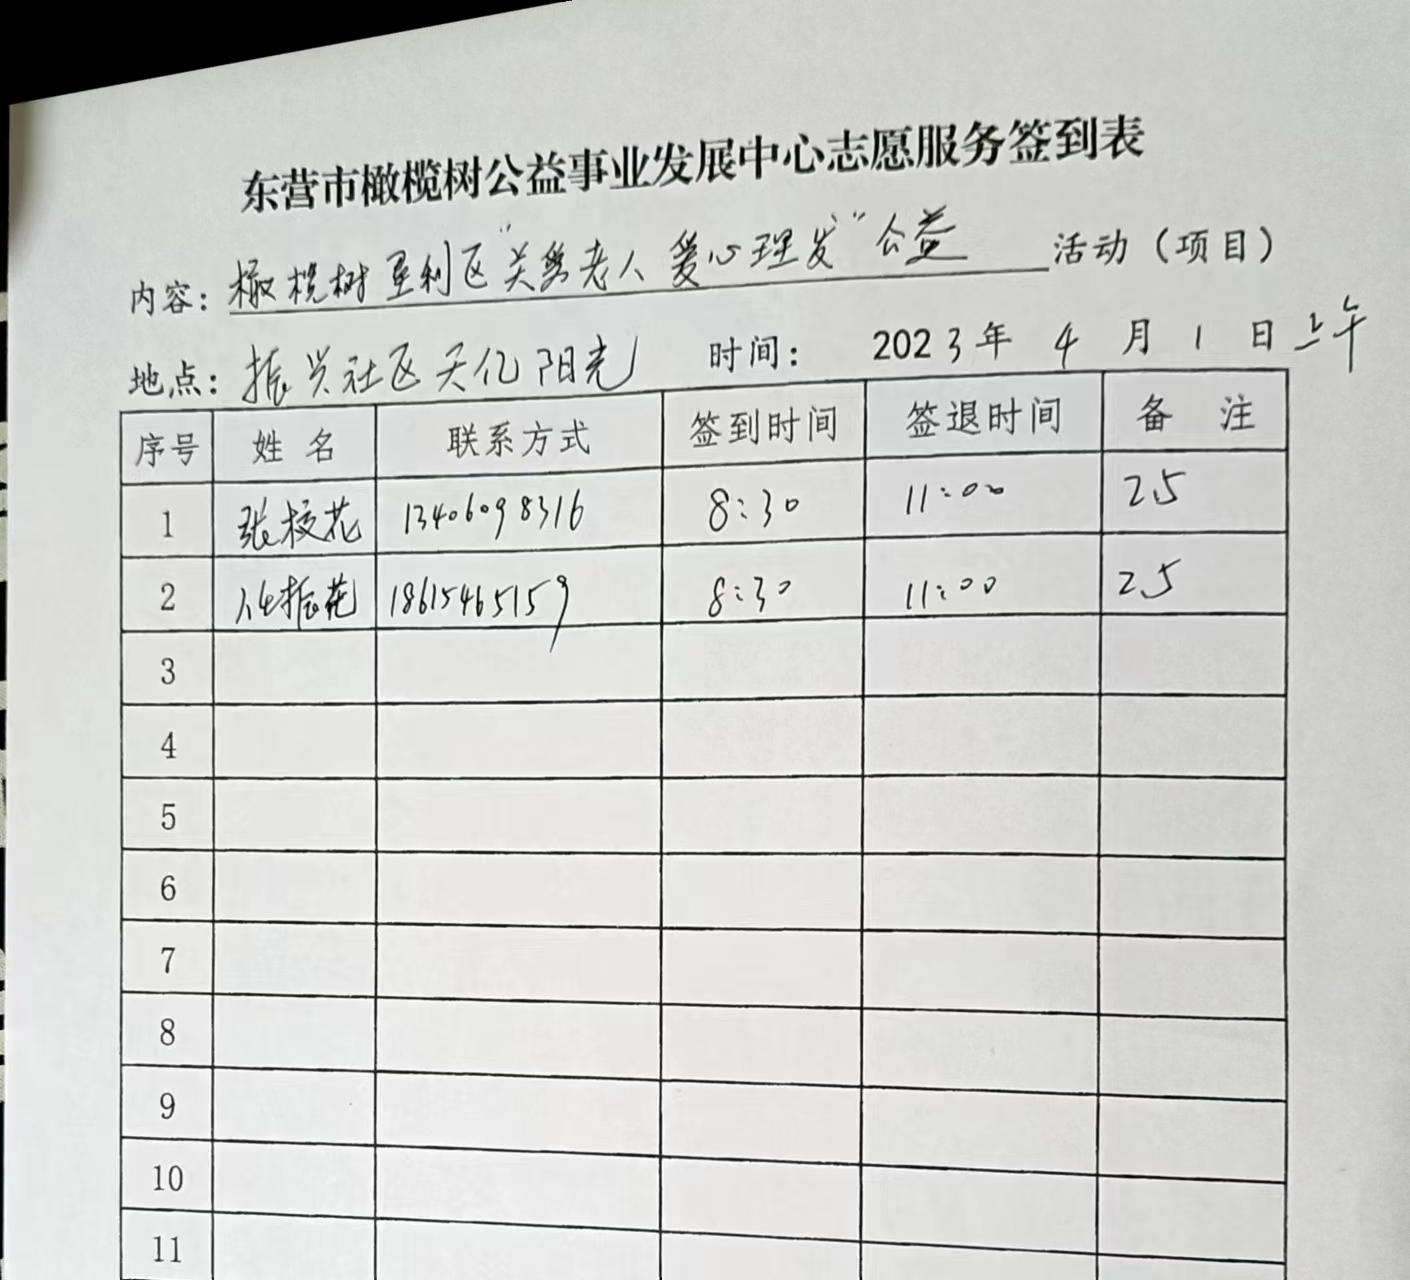 东营市橄榄树公益事业发展中心志愿服务签到表
内容：橄榄树垦利区“关爱老人爱心理发”公益 活动（项目）
地点：振兴社区天亿阳光 时间： 2023年 4 月 1 日上午
序号 姓 名 联系方式 签到时间 签退时间 备 注
1 张校花 13406098316 8:30 11:00 25
2 振花 18615465159 8:30 11:00 25
3
4
5
6
7
8
9
10
11